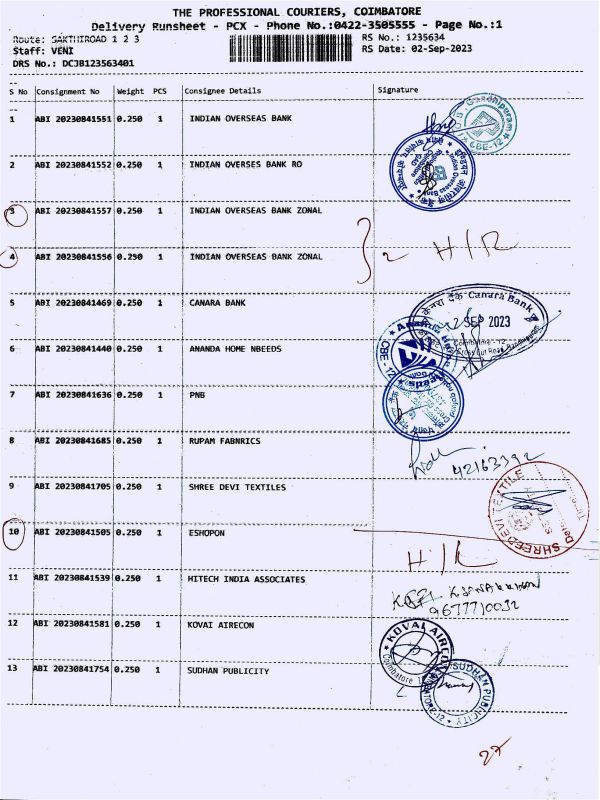 THE PROFESSIONAL COURIERS, COIMBATORE
Delivery Runsheet - PCX - Phone No.:0422-3505555 - Page No.:1
Route: SAKTHIROAD 1 2 3
RS No.: 1235634
Staff: VENI
RS Date: 02-Sep-2023
DRS No.: DCJB123563401
S No Consignment No Weight PCS Consignee Details Signature
1 ABI 20230841551 0.250 1 INDIAN OVERSEAS BANK
2 ABI 20230841552 0.250 1 INDIAN OVERSES BANK RO
3 ABI 20230841557 0.250 1 INDIAN OVERSEAS BANK ZONAL
4 ABI 20230841556 0.250 1 INDIAN OVERSEAS BANK ZONAL
2 H/R
5 ABI 20230841469 0.250 1 CANARA BANK
केनरा बैंक Canara Bank
2 SEP 2023
6 ABI 20230841440 0.250 1 ANANDA HOME NBEEDS
CBE - 12
7 ABI 20230841636 0.250 1 PNB
8 ABI 20230841685 0.250 1 RUPAM FABNRICS
42163392
9 ABI 20230841705 0.250 1 SHREE DEVI TEXTILES
SHREEDEVI TEXTILE
10 ABI 20230841505 0.250 1 ESHOPON
H/R
11 ABI 20230841539 0.250 1 HITECH INDIA ASSOCIATES
9677710032
12 ABI 20230841581 0.250 1 KOVAI AIRECON
KOVAI AIRCON
Coimbatore
13 ABI 20230841754 0.250 1 SUDHAN PUBLICITY
SUDHAN PUBLICITY
27